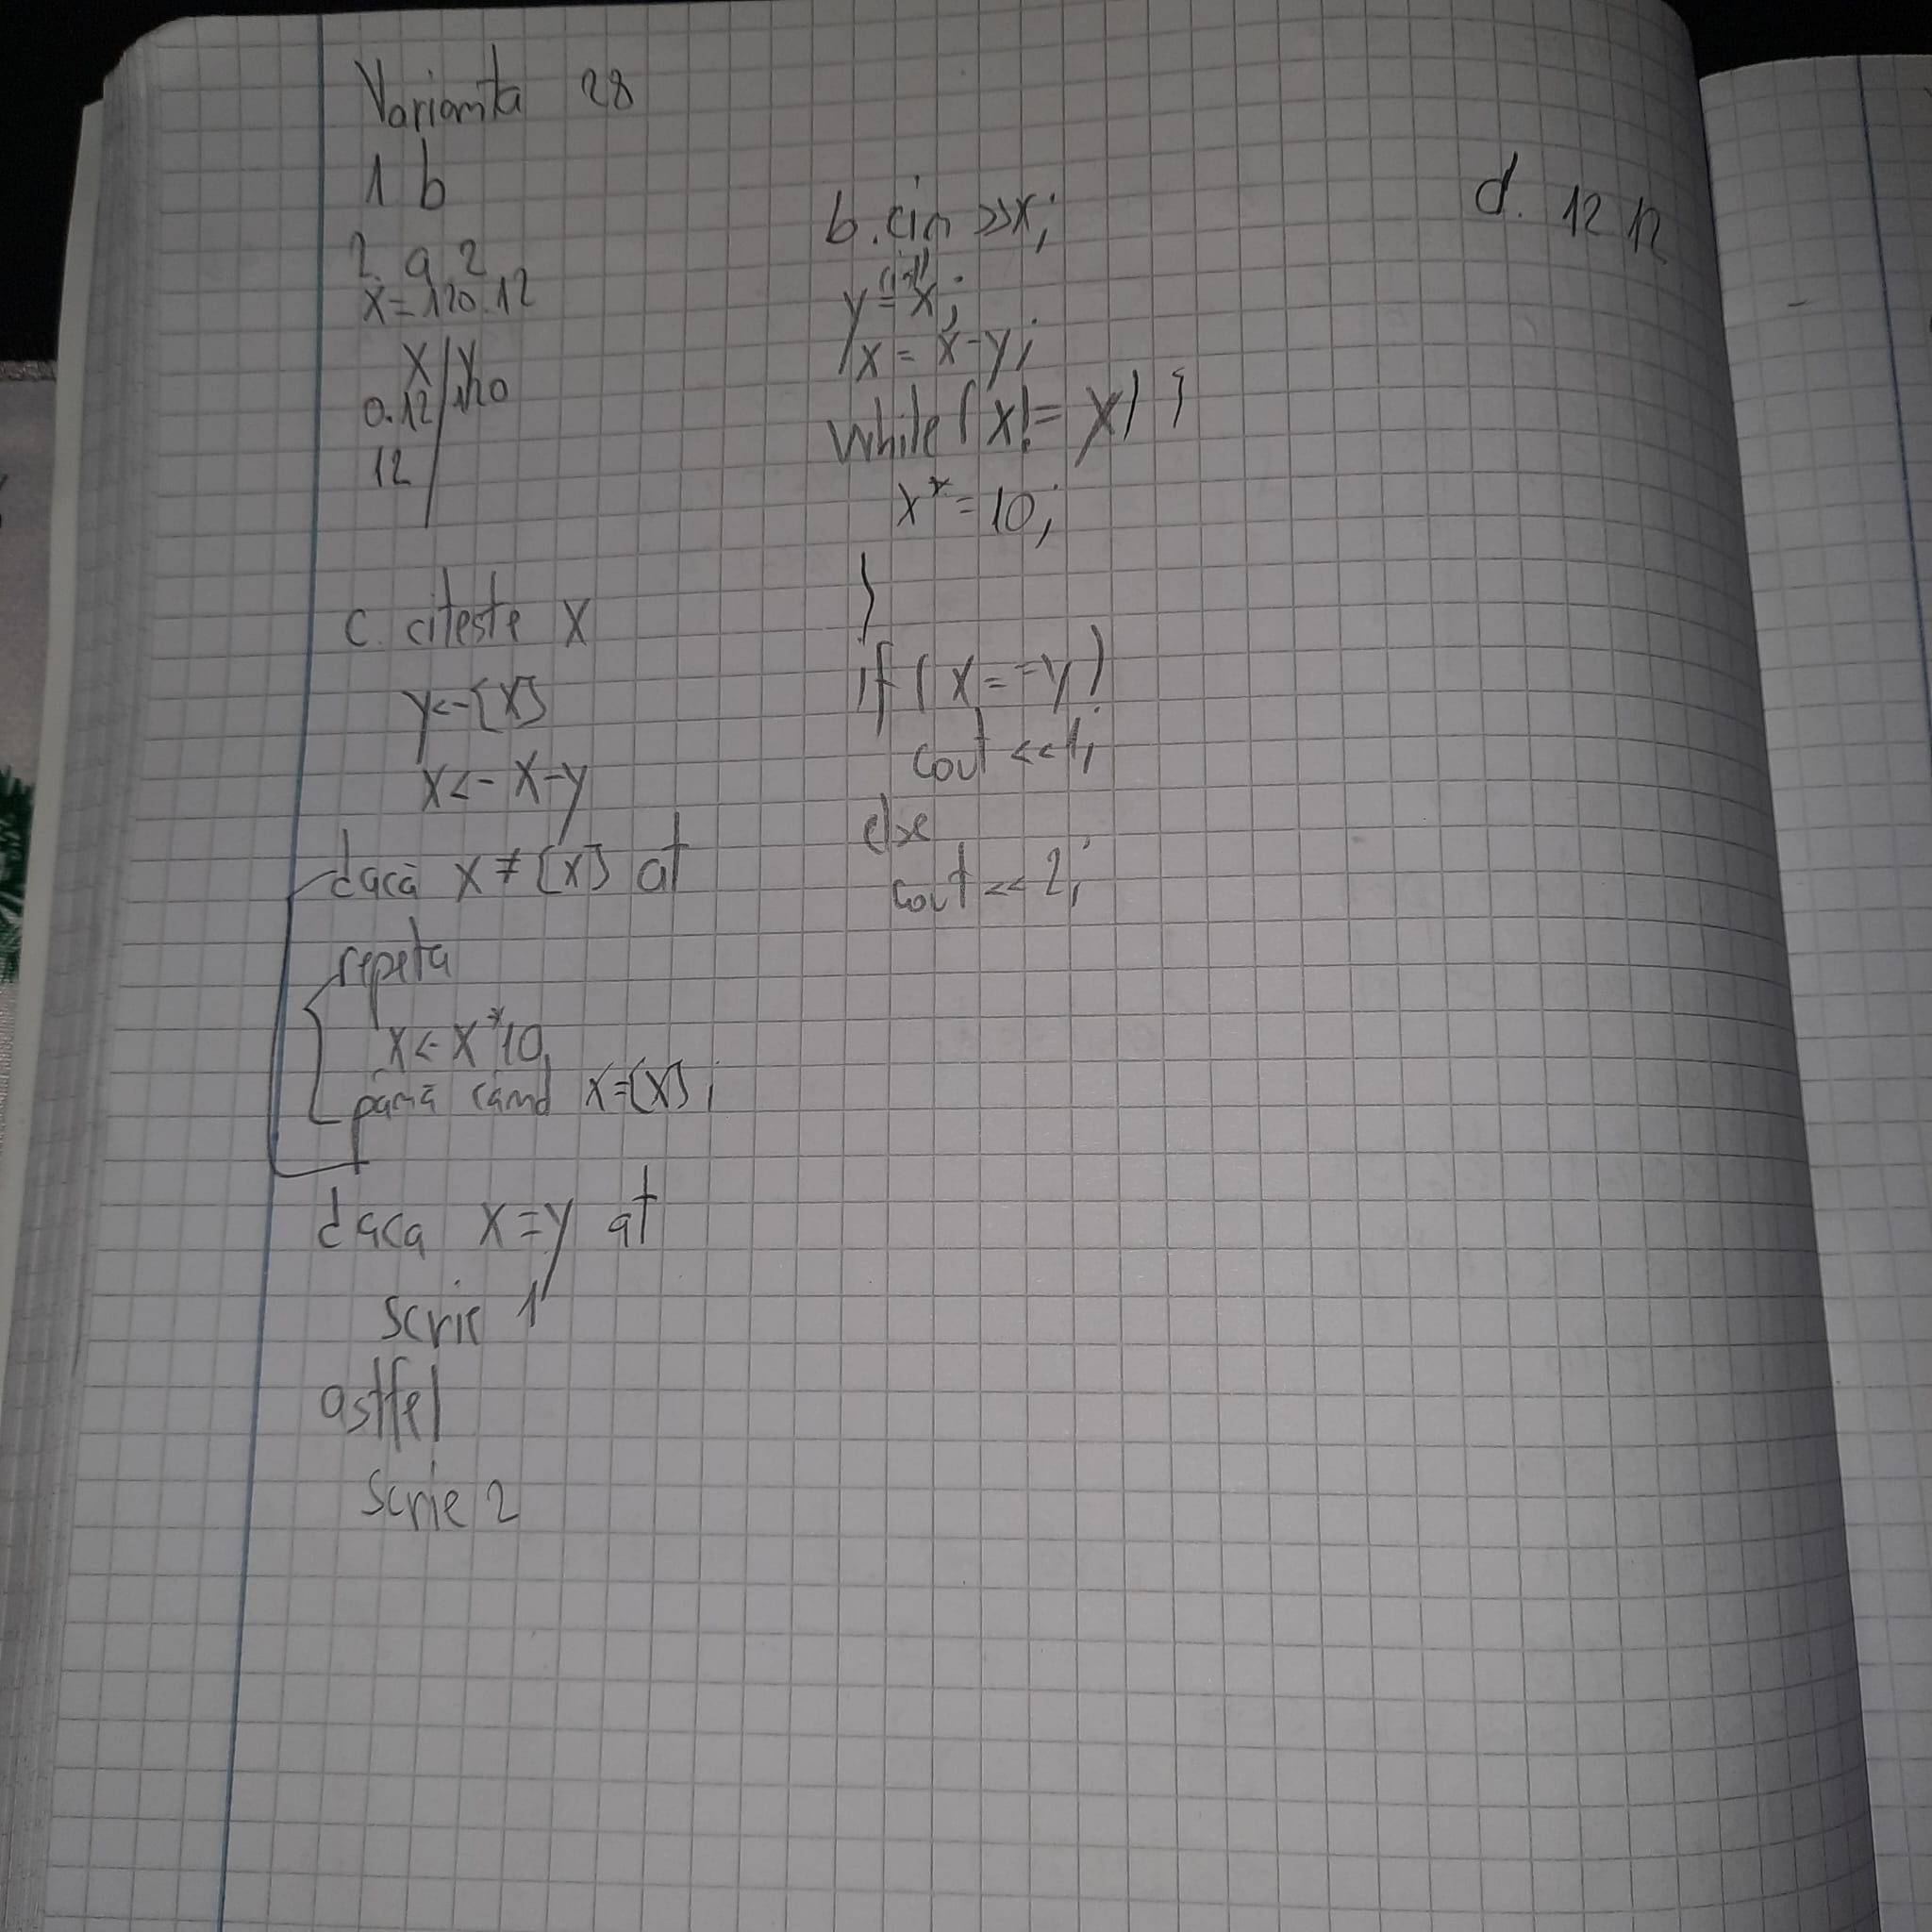 Varianta 28
1 b
2. a 2
x = 120.12
x | y
0.12 | 120
12 |
c. citeste x
y <- [x]
x <- x-y
dacă x ≠ [x] at
repeta
x <- x*10
până când x=[x];
daca x=y at
scrie 1
astfel
scrie 2
b. cin >>x;
y = x;
x = x-y;
while (x!= x) {
x*=10;
}
if (x==y)
cout <<1;
else
cout << 2;
d. 12 12